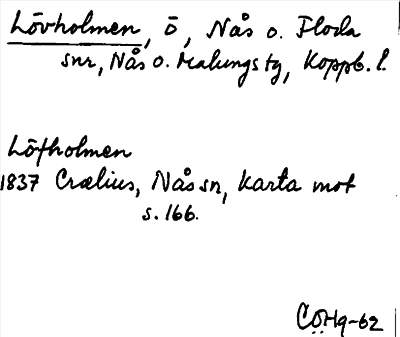 Lövholmen, ö, Nås o. Floda
snr, Nås o. Malungs tg, Koppb. l.
Löfholmen
1837 Crælius, Nås sn, Karta mot
s. 166.
CÖHg-62